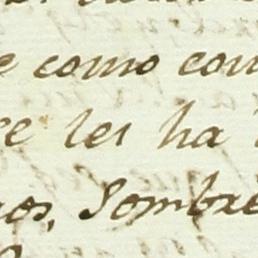 e como con
re les ha
nos, Sombre